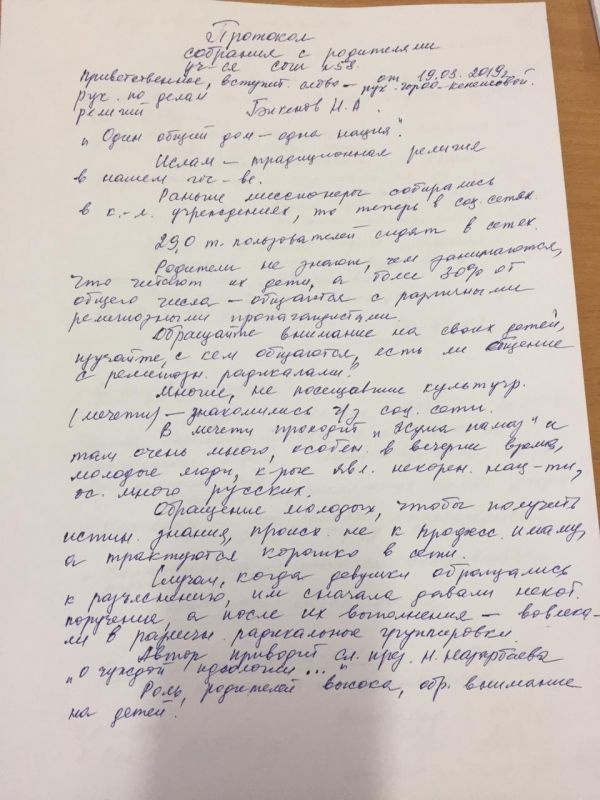 Протокол
собрания с родителями
уч-ся сош №58.
от 19.03.2019г
Приветственное, вступит. слово –
рук. по делам
религий Бекенов Н.А.
„Один общий дом – одна нация".
Ислам – традиционная религия
в нашем гос-ве.
Раньше миссионеры собирались
в к.-л. учреждениях, то теперь в соц. сетях.
29,0 т. пользователей сидят в сетях.
Родители не знают, чем занимаются,
что читают их дети, а более 30% от
общего числа – общаются с различными
религиозными пропагандистами.
Обращайте внимание на своих детей,
изучайте, с кем общаются, есть ли общение
с религиозн. радикалами?
Многие, не посещавшие культучр.
(мечети) – знакомились ч/з соц. сети.
В мечети проходит „Жума намаз" и
там очень много, особен. в вечернее время,
молодые люди, к-рые явл. некорен. нац-ти,
ос. много русских.
Обращение молодых, чтобы получить
истин. знания, происх. не к професс. имаму,
а трактуются коряшко в сети.
Случаи, когда девушки обращались
к разъяснению, им сначала давали некот.
поручения, а после их выполнения – вовлека-
ли в различн. радикальные группировки.
Автор приводит сл. през. Н. Назарбаева
„о чуждой идеологии ..."
Роль родителей высока, обр. внимание
на детей.